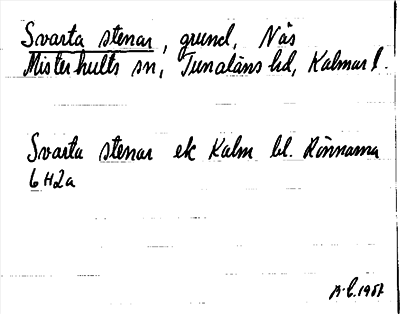 Svarta stenar, grund, Näs
Misterhults sn, Tunaläns hd, Kalmar l.
Svarta stenar ek Kalm bl. Rönnarna
6H2a
1957